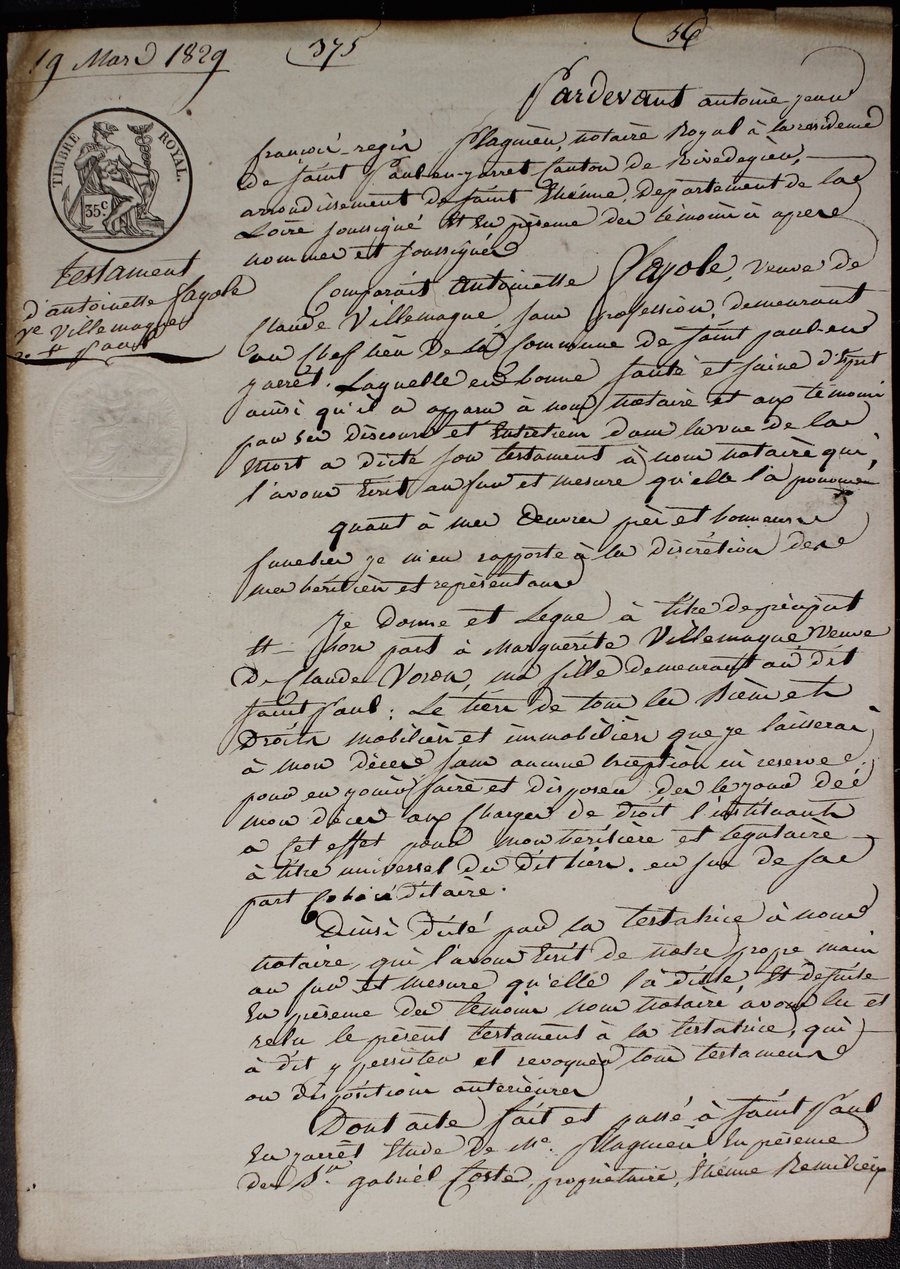 19 Mars 1829
375
56
TIMBRE ROYAL.
35 c
testament
d'antoinette fayole
ve Villemagne
st paul
Pardevant antoine jean
françois-regis flaguien, notaire Royal à la residence
de saint Paul-en-jarret Canton de Rivedegier,
arrondissement de saint Etienne, Departement de la
Loire soussigné Et En présence des témoins ci après
nommés et soussignés
Comparait Antoinette fayole, veuve de
Claude Villemagne, sans profession, demeurant
au Chef lieu de la Commune de saint paul-en
jarret. Laquelle en bonne santé et saine d'Esprit
ainsi qu'il a apparu à nous notaire et aux témoins
par ses discours et Entretiens dans la vue de la
Mort a dicté son testament à nous notaire qui
l'avons Ecrit au fur et mesure qu'elle l'a prononcé
quant à mes Oeuvres pies et honneurs
funebres je m'en rapporte à la discrétion de
mes héritiers et représentans
Je Donne et Legue à titre de préciput
Et hors part à Marguerite Villemagne Veuve
De Claude Voron, ma fille demeurant au dit
saint Paul; Le tiers de tous les Biens et
Droits mobiliers et immobiliers que je laisserai
à mon décès, sans aucune Exeption ni reserve
pour en jouir faire et disposer des le jour de
mon décès aux Charges de droit l'instituant
a cet effet pour mon héritière et légataire
à titre universel du dit tiers. en sus de sa
part cohéréditaire.
Ainsi dicté par la testatrice à nous
notaire, qui l'avons Ecrit de notre propre main
au fur et mesure qu'elle l'a dicté, Et de suite
En présence des témoins nous notaire avons lu et
relu le présent testament à la testatrice, qui
à dit y persister et revoquer tous testamens
ou dispositions anterieures
Dont acte fait et passé à saint Paul
En jarrêt Etude de Me. flaguien En présence
des Srs. gabriel Coste, propriétaire, Etienne Remilieux